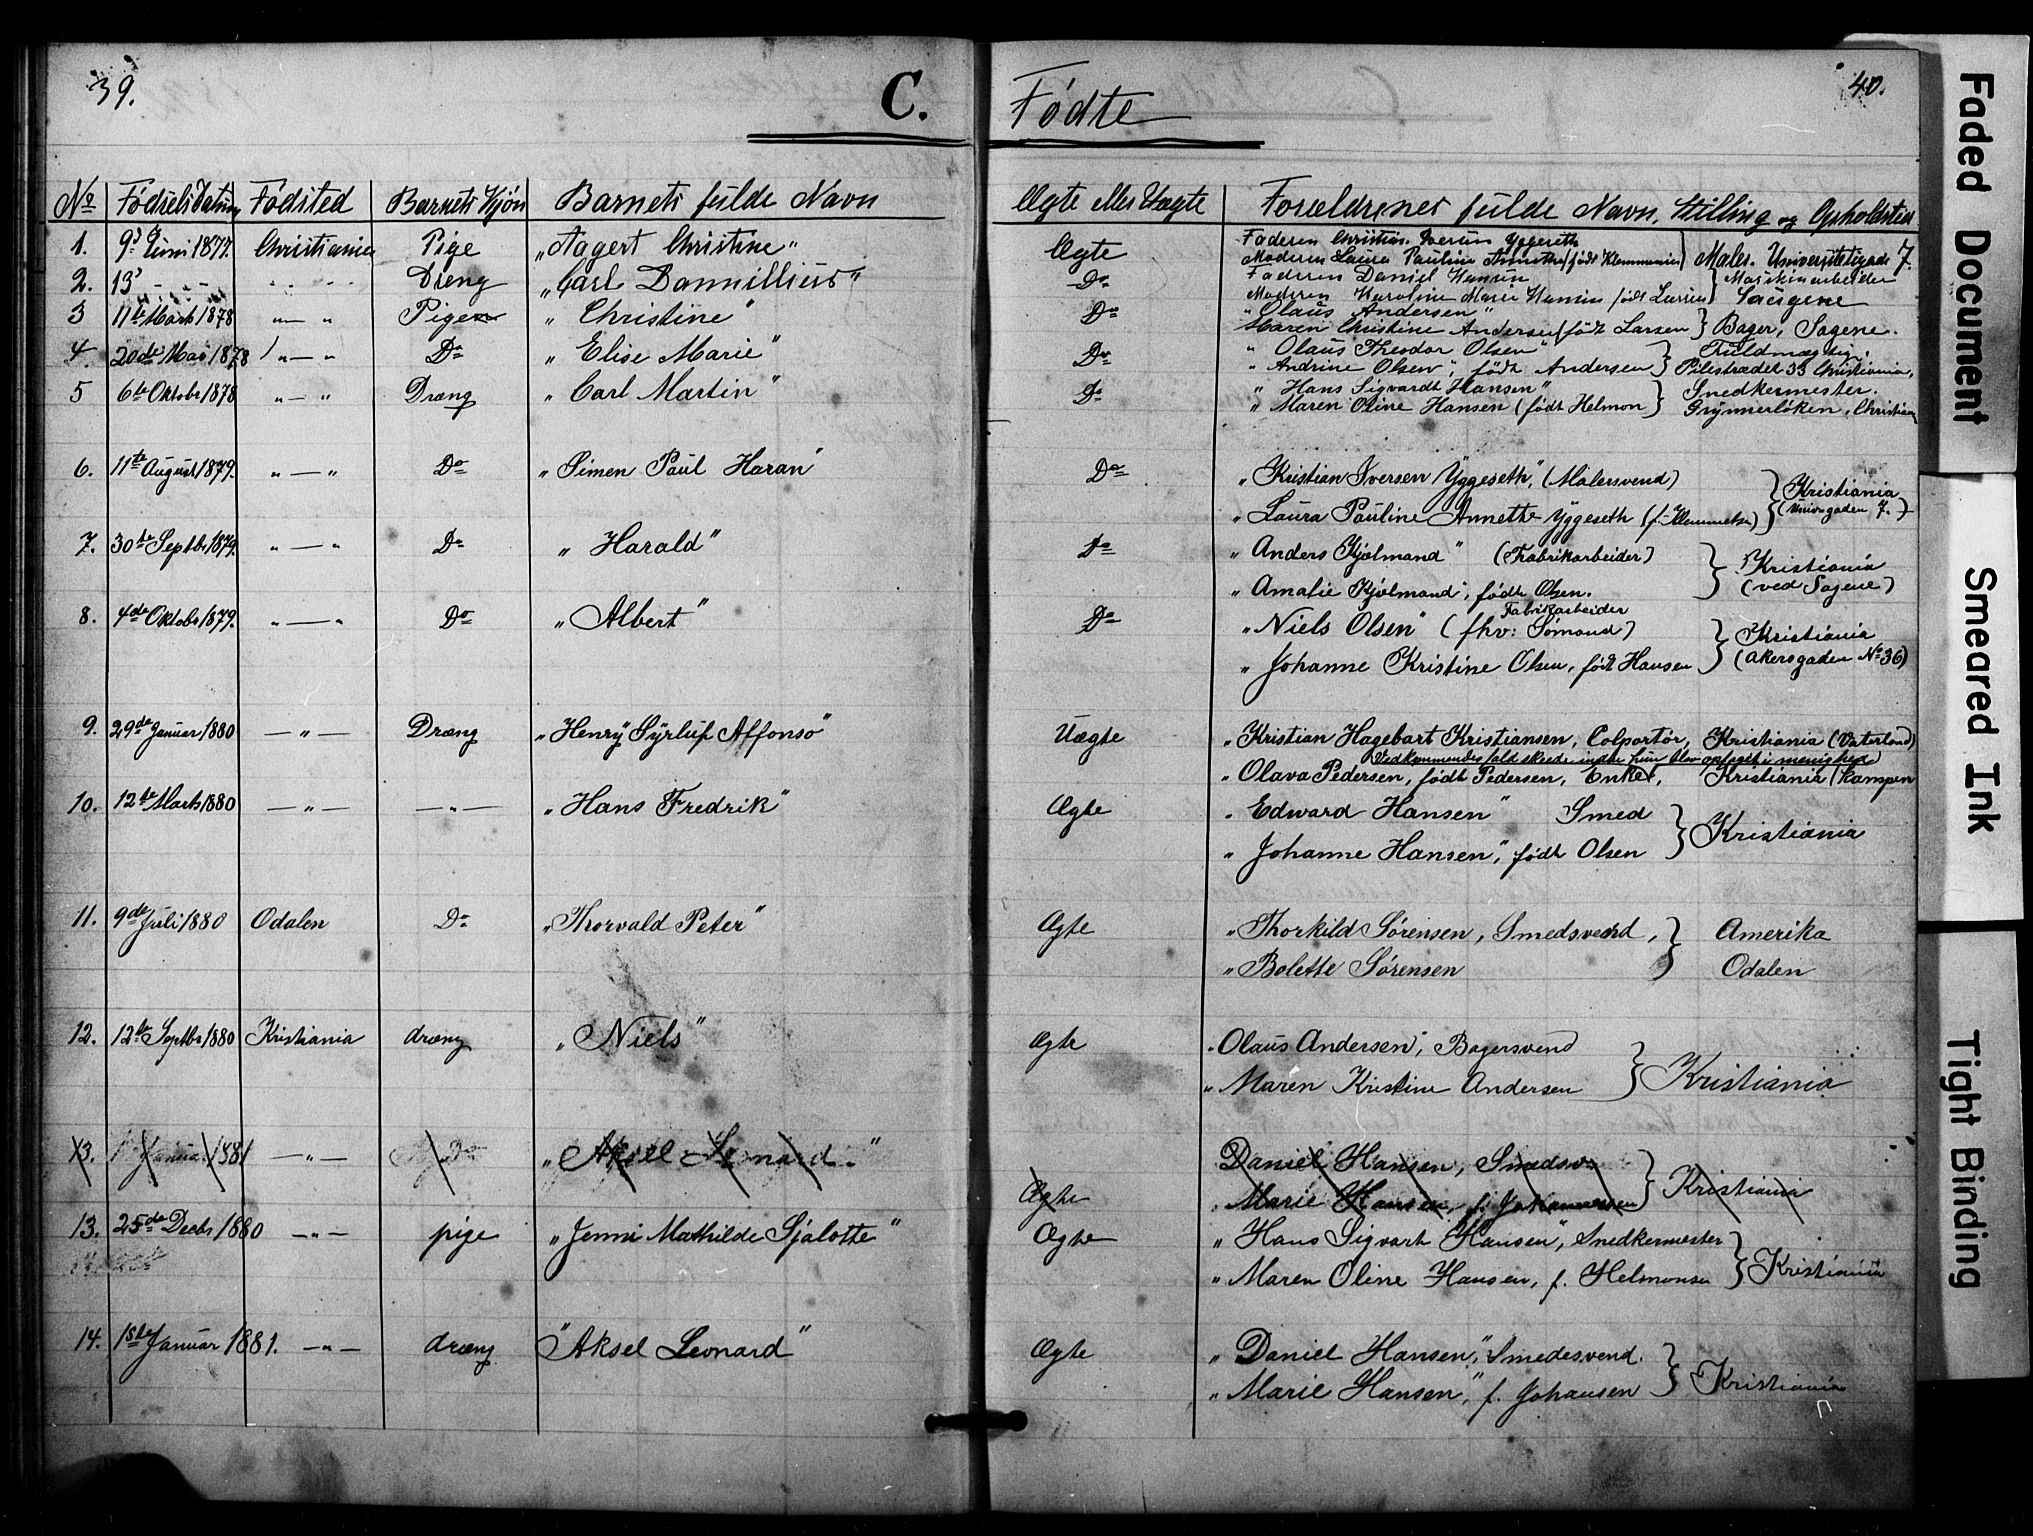 39.
C. Fødte
40.
No Fødselsdatum Fødsted Barnets Kjøn Barnets fulde Navn Ægte eller Uægte Forældrenes fulde Navn, Stilling og Opholdsted
1. 9de Juni 1877. Christiania Pige „Aagert Christine" Ægte Faderen Christian Yggeseth
Moderen Laura Pauline Annette (født Klemmensen) Maler. Universitetsgade 7.
2. 13 Dreng „Carl Dannillius" Do Faderen Daniel Hansen Maskinarbeider
Moderen Karoline Marie Hansen født Larsen Sagene
3 11te Marts 1878 „ — „ Pige „ Christine" Do „ Olaus Andersen"
Maren Christine Andersen (født Larsen Bager, Sagene.
4. 20de Mai 1878 „ — „ Do „ Elise Marie" Do „ Olaus Theodor Olsen" Fuldmægtig.
„ Andrine Olsen", født Andersen Pilestrædet 33 Christiania.
5 6te Oktobr 1878 „ — „ Dræng „ Carl Martin" Do „ Hans Sigvardt Hansen" Snedkermester.
„ Maren Oline Hansen (født Helmon Grynnerløken, Christian
6. 11te August 1879. „ — „ Do „ Simen Paul Haran" Do „ Kristian Iversen Yggeseth", (Malersvend)
„ Laura Pauline Annette Yggeseth (f. Klemmetsen) Kristiania (Univ.gaden 7.)
7. 30te Septbr 1879. „ — „ Do „ Harald" Do „ Anders Kjølmand" (Fabrikarbeider)
„ Amalie Kjølmand", født Olsen. Kristiania (ved Sagene)
8. 4de Oktobr 1879. „ — „ Do „ Albert" Do „ Niels Olsen" (fhv: Sømand) Fabrikarbeider
„ Johanne Kristine Olsen, født Hansen Kristiania (Akersgaden No 36)
9. 29de Januar 1880 — „ — Dræng „ Henry Syrluf Alfonso" Uægte „ Kristian Hagebart Kristiansen, Colportør, Kristiania (Vaterland)
Vedkommendes fald skeede inden hun blev optaget i menighed
„ Olava Pedersen, født Pedersen, Enke, Kristiania (Kampen
10. 12te Marts 1880 — „ — — „ — „ Hans Fredrik" Ægte „ Edward Hansen" Smed
„ Johanne Hansen", født Olsen Kristiania
11. 9de Juli 1880 Odalen Do „ Thorvald Peter" Ægte „ Thorkild Sørensen, Smedsvend, Amerika
„ Bolette Sørensen Odalen
12. 12te Septbr 1880 Kristiania dræng „ Niels" Ægte „ Olaus Andersen", Bagersvend
„ Maren Kristine Andersen Kristiania
13. Januar 1881 — „ — Do „ Aksel Leonard" Ægte Daniel Hansen, Smedsv.
„ Marie Hansen, f. Johannesen Kristiania
13. 25de Decbr 1880 — „ — pige „ Jenni Mathilde Sjalotte" Ægte „ Hans Sigvart Hansen", Snedkermester
„ Maren Oline Hansen, f. Helmonsen Kristiania
14. 1ste Januar 1881. — „ — dræng „ Aksel Leonard" Ægte „ Daniel Hansen", Smedesvend.
„ Marie Hansen", f. Johansen Kristiania
Faded Document
Smeared Ink
Tight Binding